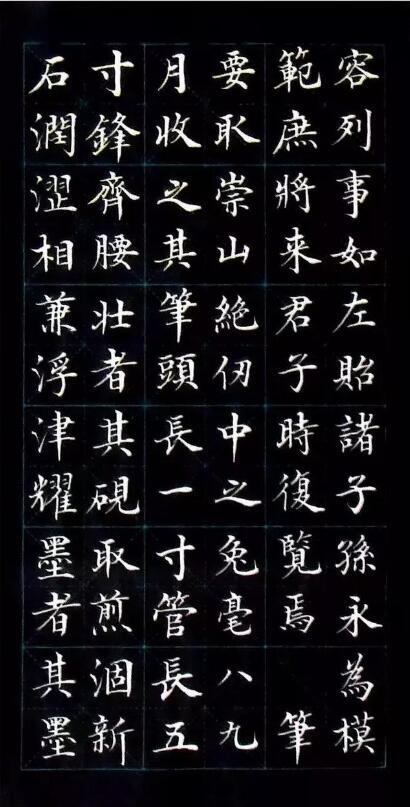 容列事如左貽諸子孫永為模
範庶將来君子時復覽焉　筆
要取崇山絕仞中之兔毫八九
月收之其筆頭長一寸管長五
寸鋒齊腰壯者其硯取煎涸新
石潤澀相兼浮津耀墨者其墨